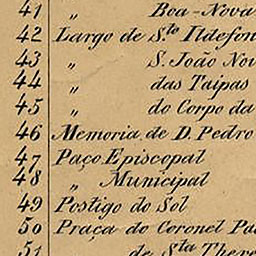 41 „ Boa-Nova
42 Largo de S.to Ildefon
43 „ S. João Nov
44 „ das Taipas
45 „ do Corpo da
46 Memoria de D. Pedro
47 Paço Episcopal
48 „ Municipal
49 Postigo do Sol
50 Praça do Coronel Pa
51 de Sta There